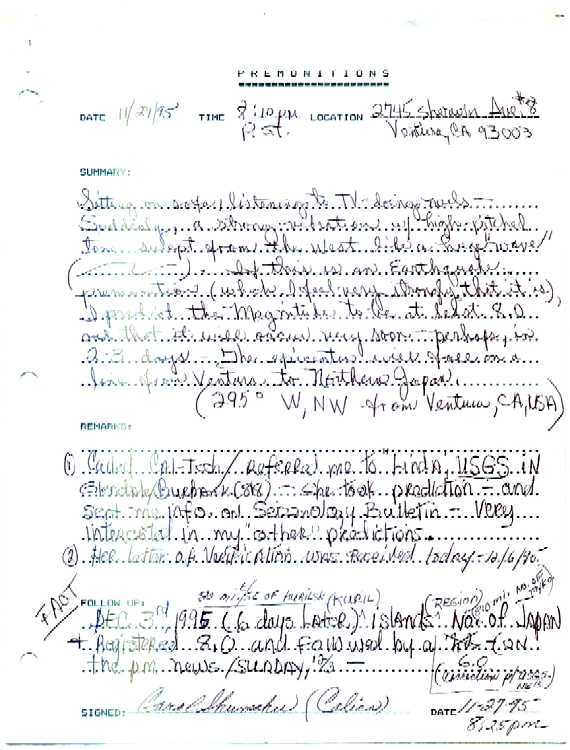 PREMONITIONS
DATE 11/27/95 TIME 8:10 pm LOCATION 2745 Sherwin Ave #8
P.S.T. Ventura, CA 93003
SUMMARY:
Sitting on sofa, listening to TV - doing nails -
Suddenly, a strong vibration w/ high-pitched
tone swept from the west like a huge "wave"
( ). If this is an Earthquake
premonition (which I feel very strongly that it is),
I predict the Magnitude to be at least 8.0
and that it will occur very soon - perhaps, in
2-3 days. The epicenter will be on a
line from Ventura to Northern Japan.
(295° W, NW from Ventura, CA, USA)
REMARKS:
① Called Cal-Tech / Referred me to "Linda, USGS IN
Glendale/Burbank (818) - She took prediction - and
sent me info. on Seismology Bulletin - Very
interested in my "other" predictions.
② Her Letter of Verification was received today - 12/6/95.
FACT
FOLLOW UP: of KURIL (REGION)
DEC. 3rd, 1995 (6 days LATER) ISLANDS No. of JAPAN
+ Registered 8.0 and followed by a (ON
the pm news / SUNDAY, - 6.0
(Correction p/ USGS-
NEIS)
SIGNED: Carol Shumaker (Calica) DATE 11-27-95
8:25 pm